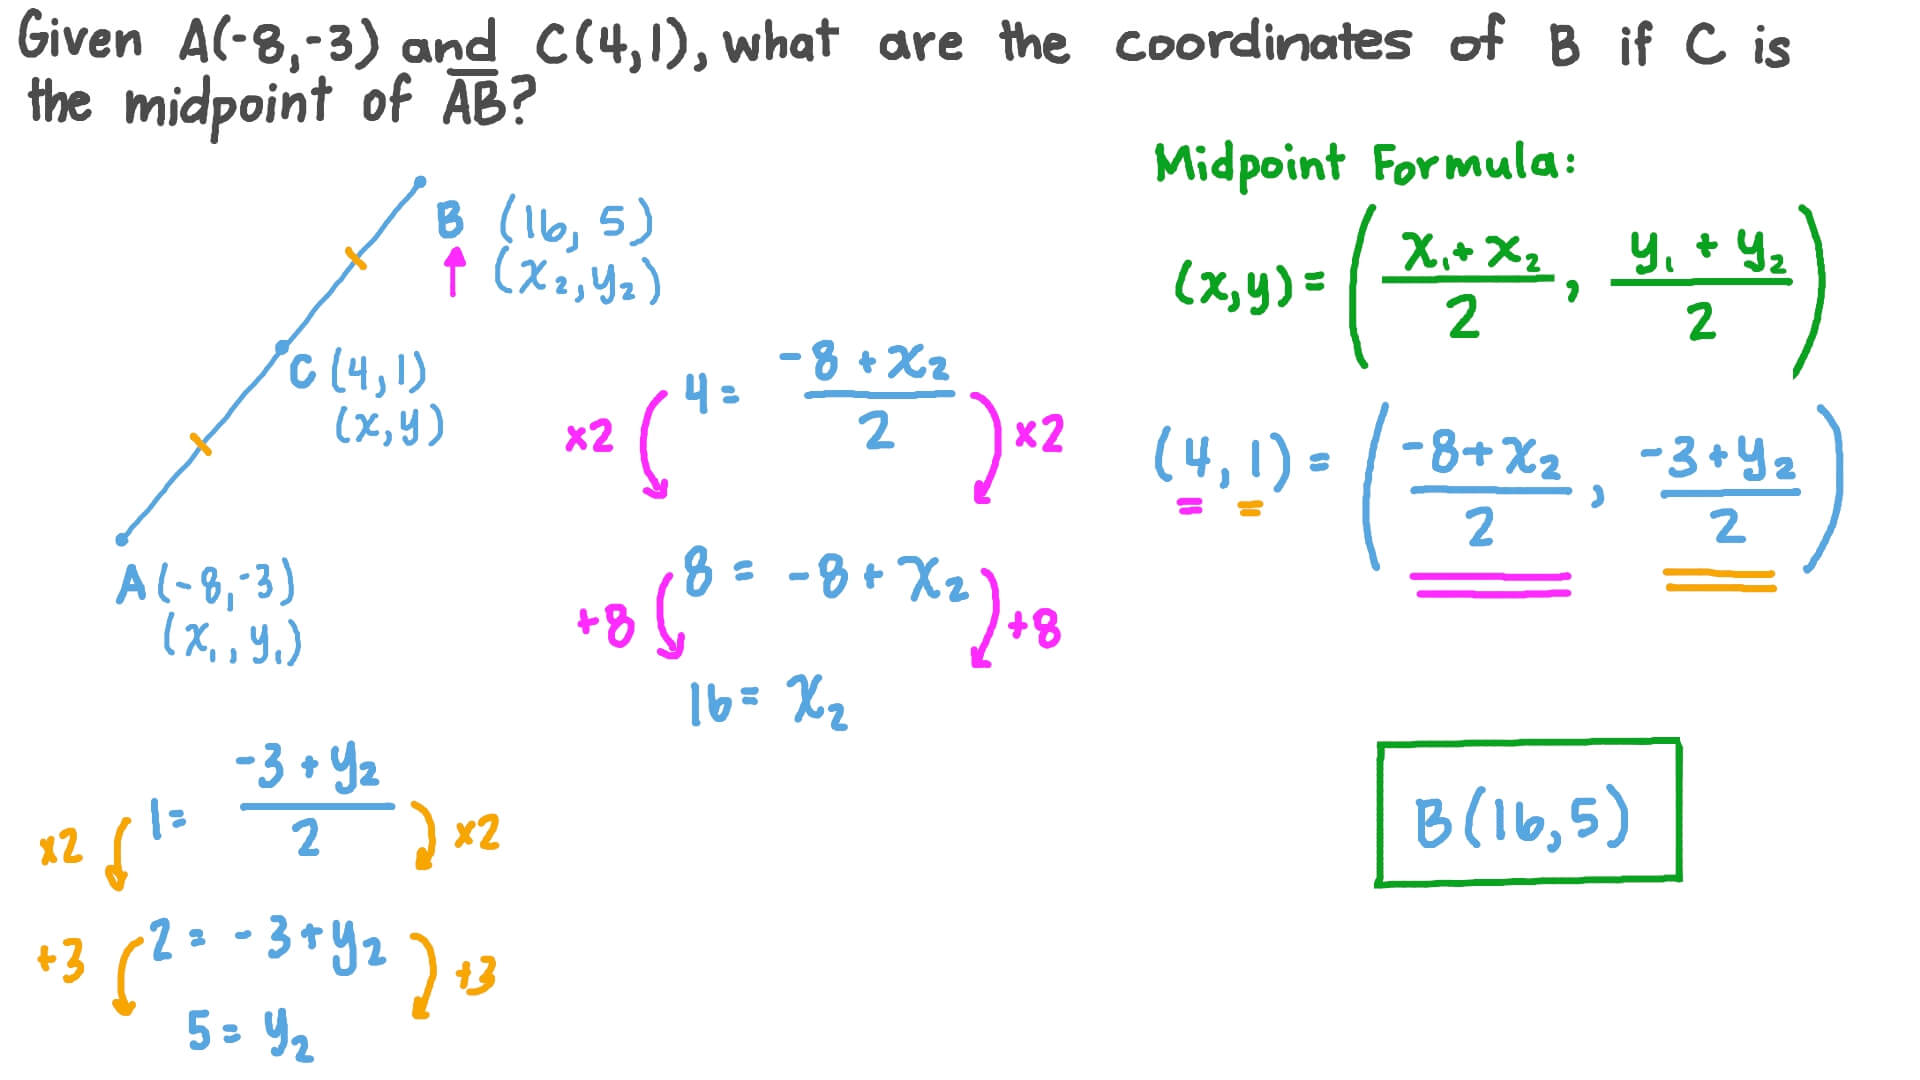 Given A(-8,-3) and C(4,1), what are the coordinates of B if C is
the midpoint of A̅B̅?
B (16, 5)
(x₂, y₂)
C (4,1)
(x,y)
A (-8,-3)
(x₁, y₁)
Midpoint Formula:
(x,y) = ( x₁ + x₂ / 2 , y₁ + y₂ / 2 )
(4, 1) = ( -8 + x₂ / 2 , -3 + y₂ / 2 )
x2 4 = -8 + x₂ / 2 x2
+8 8 = -8 + x₂ +8
16 = x₂
x2 1 = -3 + y₂ / 2 x2
+3 2 = -3 + y₂ +3
5 = y₂
B(16,5)